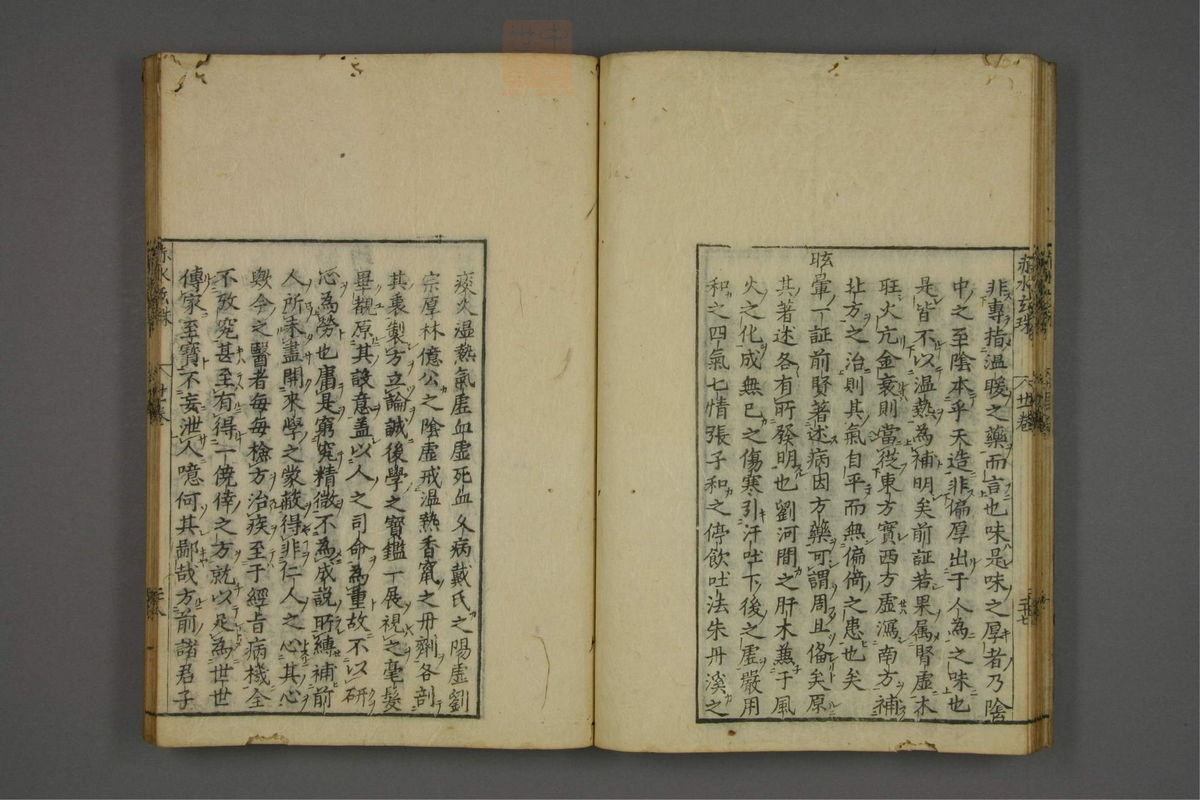 赤水玄珠 廿卷 三十七
非專指溫暖之藥而言也味是味之厚者乃陰
中之至陰本乎天造非偏厚出于人為之味也
是皆不以溫熱為補明矣前証若果属腎虛木
旺火亢金衰則當從東方實西方虛瀉南方補
北方之治則其氣自平而無偏倚之患也矣
眩暈一証前賢著述病因方藥可謂周且俻矣原
其著述各有所發明也劉河間之肝木兼于風
火之化成無已之傷寒引汗吐下後之虛嚴用
和之四氣七情張子和之停飲吐法朱丹溪之
痰火濕熱氣虛血虛死血久病戴氏之陽虛劉
宗厚林億公之陰虛戒溫熱香竄之丹劑各剖
其裏製方立論誠後學之寶鑑一展視之毫髮
畢觀原其設意盖以人之司命為重故不以研
心為勞也庸是窮究精微不為成說所縛補前
人所未盡開來學之蒙蔽得非仁人之心其心
歟今之醫者每每檢方治疾至于經旨病機全
不攷究甚至有得一僥倖之方就以是為世世
傳家至寶不妄泄人噫何其鄙哉方前諸君子
赤水玄珠 廿卷